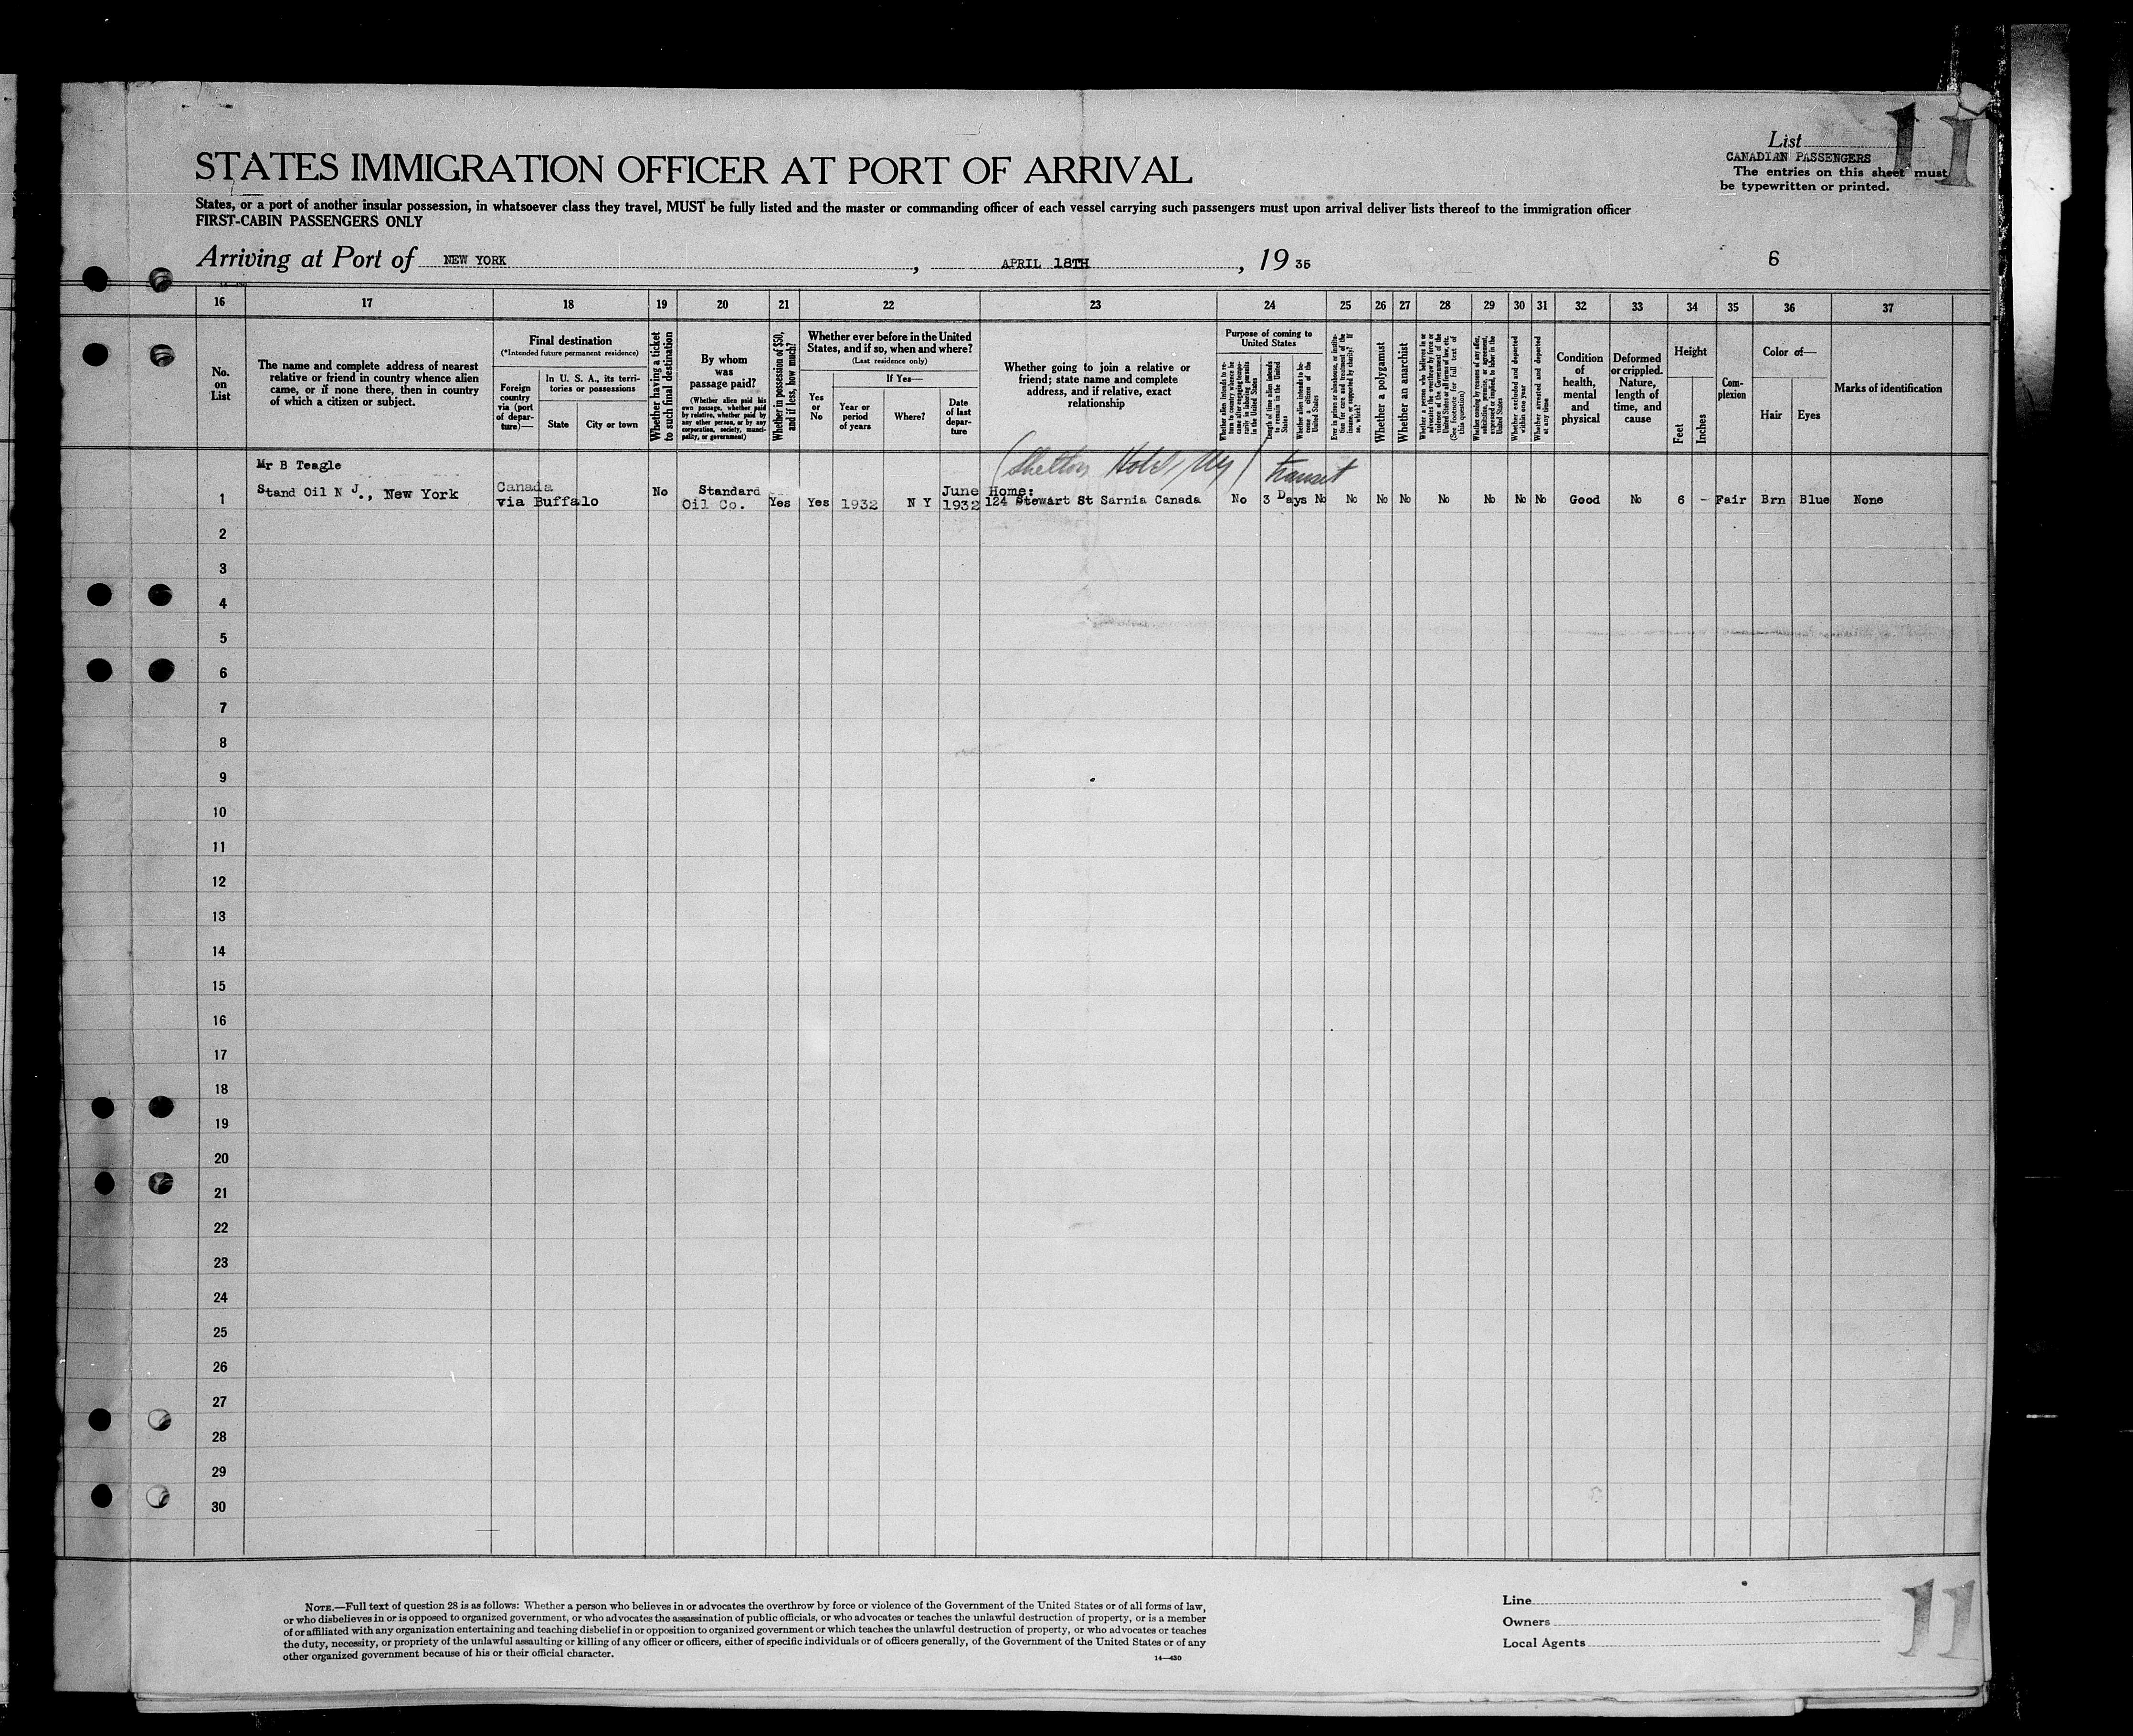 11
List
CANADIAN PASSENGERS
The entries on this sheet must
be typewritten or printed.
STATES IMMIGRATION OFFICER AT PORT OF ARRIVAL
States, or a port of another insular possession, in whatsoever class they travel, MUST be fully listed and the master or commanding officer of each vessel carrying such passengers must upon arrival deliver lists thereof to the immigration officer
FIRST-CABIN PASSENGERS ONLY
Arriving at Port of NEW YORK, APRIL 18TH, 19 35
6
16 17 18 19 20 21 22 23 24 25 26 27 28 29 30 31 32 33 34 35 36 37
No.
on
List
The name and complete address of nearest
relative or friend in country whence alien
came, or if none there, then in country
of which a citizen or subject.
Final destination
(*Intended future permanent residence)
Foreign
country
via (port
of depar-
ture)—
In U. S. A., its terri-
tories or possessions
State
City or town
Whether having a ticket
to such final destination
By whom
was
passage paid?
(Whether alien paid his
own passage, whether paid
by relative, whether paid by
any other person, or by any
corporation, society, munici-
pality, or government)
Whether in possession of $50,
and if less, how much?
Whether ever before in the United
States, and if so, when and where?
(Last residence only)
Yes
or
No
If Yes—
Year or
period
of years
Where?
Date
of last
depar-
ture
Whether going to join a relative or
friend; state name and complete
address, and if relative, exact
relationship
Purpose of coming to
United States
Whether alien intends to re-
turn to country whence he
came after engaging tempo-
rarily in laboring pursuits
in the United States
Length of time alien intends
to remain in the United
States
Whether alien intends to be-
come a citizen of the
United States
Ever in prison or almshouse, or institu-
tion for care and treatment of the
insane, or supported by charity? If
so, which?
Whether a polygamist
Whether an anarchist
Whether a person who believes in or
advocates the overthrow by force or
violence of the Government of the
United States or of all forms of law, etc.
(See footnote for full text of
this question)
Whether coming by reasons of any offer,
solicitation, promise, or agreement,
expressed or implied, to labor in the
United States
Whether excluded and deported
within one year
Whether arrested and deported
at any time
Condition
of
health,
mental
and
physical
Deformed
or crippled.
Nature,
length of
time, and
cause
Height
Feet
Inches
Com-
plexion
Color of—
Hair
Eyes
Marks of identification
(Shelton Hotel, Ny) transit
Mr B Teagle
Stand Oil N J., New York
1
Canada
via Buffalo
No
Standard
Oil Co.
Yes
Yes
1932
N Y
June
1932
Home:
124 Stewart St Sarnia Canada
No
3 Days
No
No
No
No
No
No
No
No
Good
No
6 -
Fair
Brn
Blue
None
2
3
4
5
6
7
8
9
10
11
12
13
14
15
16
17
18
19
20
21
22
23
24
25
26
27
28
29
30
NOTE.—Full text of question 28 is as follows: Whether a person who believes in or advocates the overthrow by force or violence of the Government of the United States or of all forms of law,
or who disbelieves in or is opposed to organized government, or who advocates the assassination of public officials, or who advocates or teaches the unlawful destruction of property, or is a member
of or affiliated with any organization entertaining and teaching disbelief in or opposition to organized government or which teaches the unlawful destruction of property, or who advocates or teaches
the duty, necessity, or propriety of the unlawful assaulting or killing of any officer or officers, either of specific individuals or of officers generally, of the Government of the United States or of any
other organized government because of his or their official character.
14—430
Line
Owners
Local Agents
11